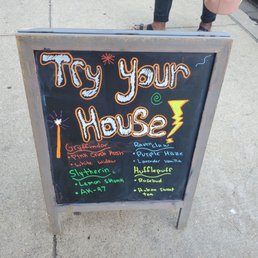 Try Your
House!
Gryffindor
• Pink Crush Kush
• White Widow
Slytherin
• Lemon Skunk
• AK-47
Ravenclaw
• Purple Haze
• Lavender Vanilla
Hufflepuff
• Rosebud